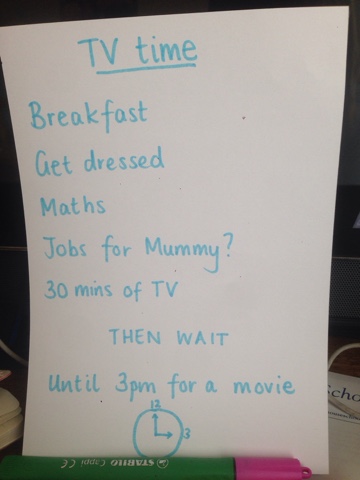 TV time
Breakfast
Get dressed
Maths
Jobs for Mummy?
30 mins of TV
THEN WAIT
Until 3pm for a movie
12
3
STABILO Cappi CE